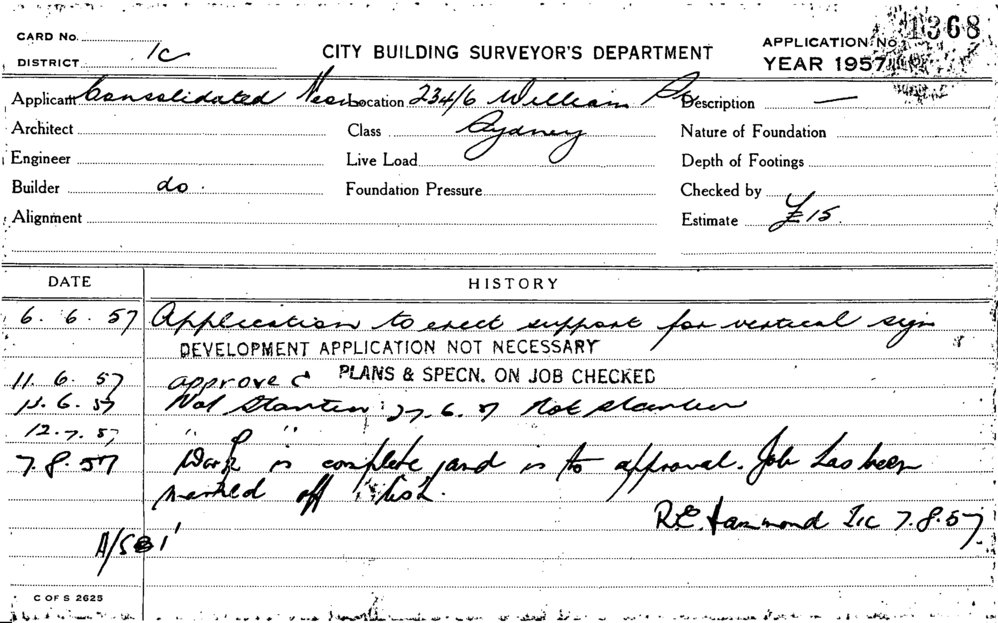 CARD No.
DISTRICT 1c
CITY BUILDING SURVEYOR'S DEPARTMENT
APPLICATION No. 1368
YEAR 1957
Applicant Consolidated Neon Location 234/6 William St Description —
Architect Class Sydney Nature of Foundation
Engineer Live Load Depth of Footings
Builder do. Foundation Pressure Checked by
Alignment Estimate £15.
DATE HISTORY
6. 6. 57 Application to erect support for vertical sign
DEVELOPMENT APPLICATION NOT NECESSARY
11. 6. 57 approved PLANS & SPECN. ON JOB CHECKED
6. 57 Not Started. 27. 6. 57 Not started
12. 7. 57 " "
7. 8. 57 Work is complete and is to approval. Job has been
marked off list.
R.E. Hammond 7. 8. 57.
C OF S 2625